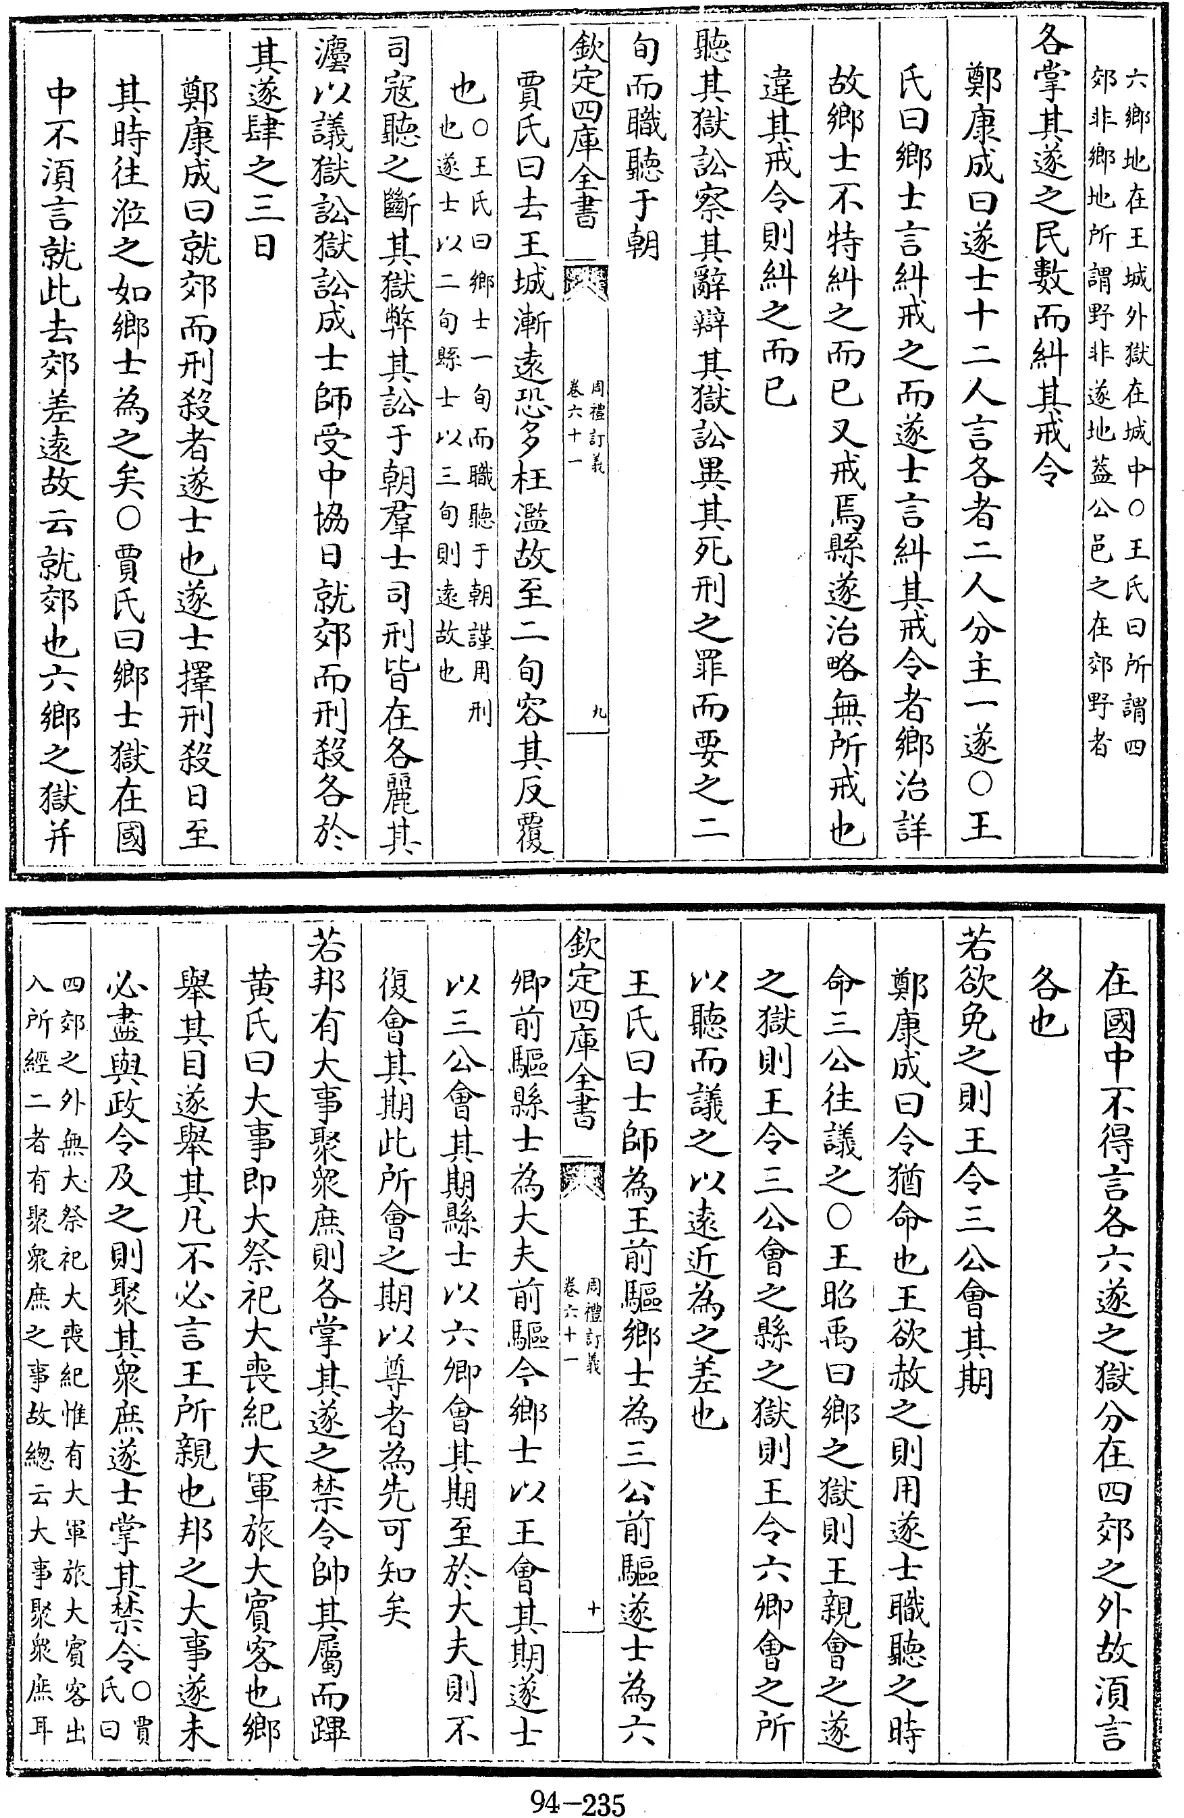 六鄉地在王城外獄在城中○王氏曰所謂四
郊非鄉地所謂野非遂地葢公邑之在郊野者
各掌其遂之民數而糾其戒令
鄭康成曰遂士十二人言各者二人分主一遂○王
氏曰鄉士言糾戒之而遂士言糾其戒令者鄉治詳
故鄉士不特糾之而已又戒焉縣遂治略無所戒也
違其戒令則糾之而已
聽其獄訟察其辭辯其獄訟異其死刑之罪而要之二
旬而職聽于朝
欽定四庫全書
周禮訂義
卷六十一
九
賈氏曰去王城漸遠恐多枉濫故至二旬容其反覆
也○王氏曰鄉士一旬而職聽于朝謹用刑
也遂士以二旬縣士以三旬則遠故也
司寇聽之斷其獄弊其訟于朝羣士司刑皆在各麗其
灋以議獄訟獄訟成士師受中協日就郊而刑殺各於
其遂肆之三日
鄭康成曰就郊而刑殺者遂士也遂士擇刑殺日至
其時往涖之如鄉士為之矣○賈氏曰鄉士獄在國
中不湏言就此去郊差遠故云就郊也六鄉之獄并
在國中不得言各六遂之獄分在四郊之外故湏言
各也
若欲免之則王令三公會其期
鄭康成曰令猶命也王欲赦之則用遂士職聽之時
命三公往議之○王昭禹曰鄉之獄則王親會之遂
之獄則王令三公會之縣之獄則王令六卿會之所
以聽而議之以遠近為之差也
王氏曰士師為王前驅鄉士為三公前驅遂士為六
欽定四庫全書
周禮訂義
卷六十一
十
卿前驅縣士為大夫前驅令鄉士以王會其期遂士
以三公會其期縣士以六卿會其期至於大夫則不
復會其期此所會之期以尊者為先可知矣
若邦有大事聚衆庶則各掌其遂之禁令帥其屬而蹕
黄氏曰大事即大祭祀大喪紀大軍旅大賓客也鄉
舉其目遂舉其凡不必言王所親也邦之大事遂未
必盡與政令及之則聚其衆庶遂士掌其禁令○賈
氏曰
四郊之外無大祭祀大喪紀惟有大軍旅大賓客出
入所經二者有聚衆庶之事故總云大事聚衆庶耳
94-235